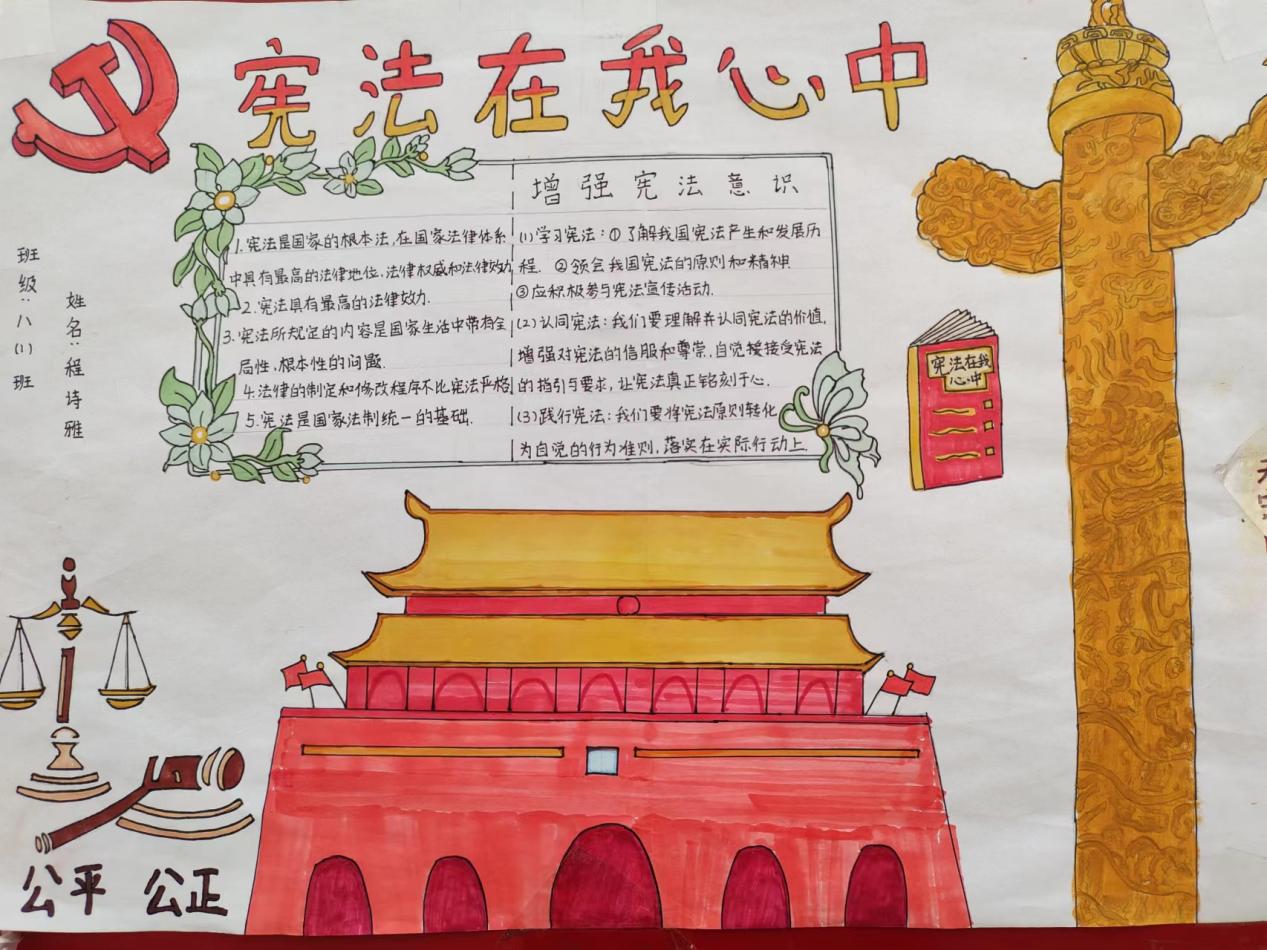 宪法在我心中
班级:八(1)班
姓名:程诗雅
1.宪法是国家的根本法,在国家法律体系
中具有最高的法律地位,法律权威和法律效力
2.宪法具有最高的法律效力.
3.宪法所规定的内容是国家生活中带有全
局性,根本性的问题.
4.法律的制定和修改程序不比宪法严格
5.宪法是国家法制统一的基础.
增强宪法意识
(1)学习宪法:①了解我国宪法产生和发展历
程.②领会我国宪法的原则和精神.
③应积极参与宪法宣传活动.
(2)认同宪法:我们要理解并认同宪法的价值,
增强对宪法的信服和尊崇,自觉接受宪法
的指引与要求,让宪法真正铭刻于心.
(3)践行宪法:我们要将宪法原则转化
为自觉的行为准则,落实在实际行动上.
宪法在我
心中
公平 公正